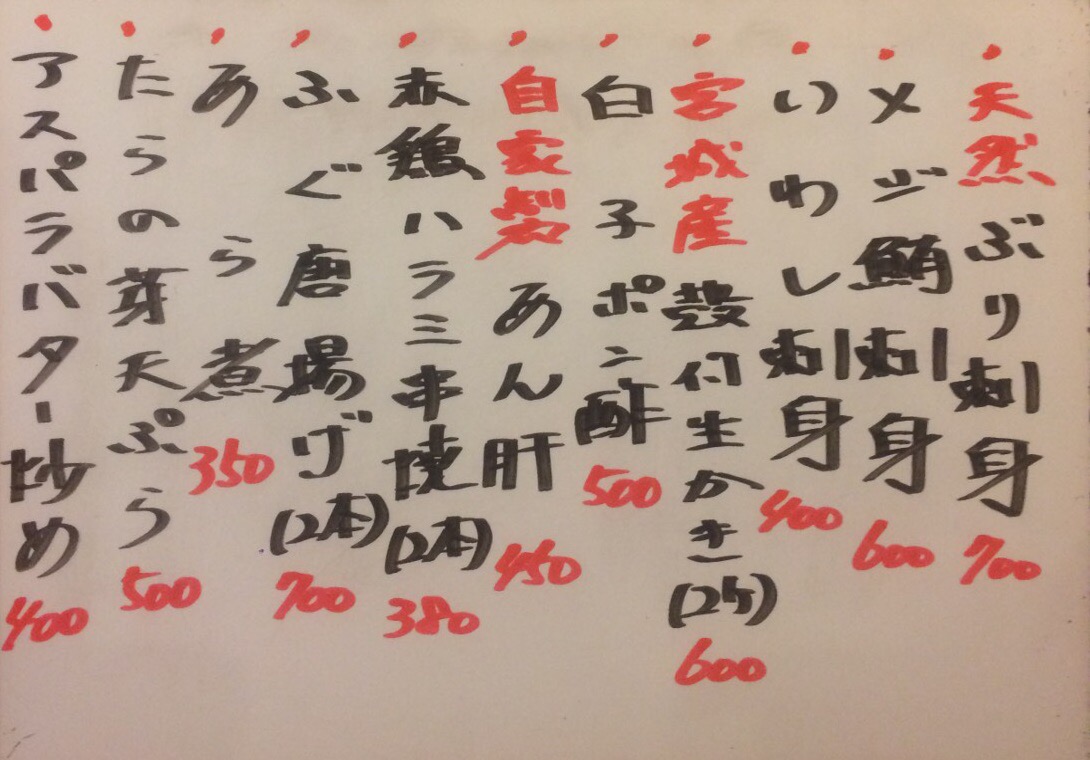 ・天然ぶり刺身 700
・メジ鮪刺身 600
・いわし刺身 400
・宮城産殻付生かき(2ケ) 600
・白子ポン酢 500
・自家製あん肝 450
・赤鶏ハラミ串焼(2本) 380
・ふぐ唐揚げ(2本) 700
・あら煮 350
・たらの芽天ぷら 500
・アスパラバター炒め 400